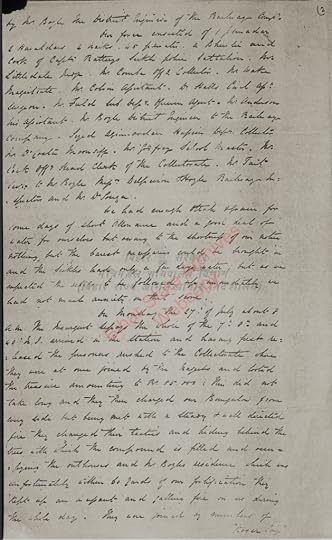 (3
by Mr Boyle the District Engineer of the Railway Compy.
Our force consisted of 1 Jemadar
2 Havildars 2 naiks. 45 privates. a Bheestie and
Cook of Captn Rattrays Seikh police Battalion. Mr.
Littledale Judge Mr Combe offg Collector. Mr Wake
Magistrate. Mr Colvin Assistant. Dr Halls Civil Asst.
Surgeon. Mr Field Sub Depy. Opium Agent. Mr Anderson
his Assistant. Mr Boyle District Engineer to the Railway
Company. Syud Azimooddeen Hossein Depy. Collector
Mr DaCosta Moonsiff. Mr Godfrey School Master. Mr
Cock Offg Head Clerk of the Collectorate. Mr Tait
Secy. to Mr Boyle Messrs Delpeiroo & Hoyle Railway In-
spectors and Mr D'Souza.
We had enough Otta Rice for
some days of short allowance and a good deal of
water for ourselves but owing to the shortness of our notice
nothing but the barest necessaries could be brought in
and the Seikhs had only a few days water but as we
expected the to be followed up immediately we
had not much anxiety on that score.
On Monday the 27th of July about 8
A.M. The insurgent Sepoys the whole of the 7th. 8th and
40th N.I. arrived in the station and having first re-
leased the prisoners rushed to the Collectorate where
they were at once joined by the Najeebs and looted
the treasure amounting to Rs 85.000: This did not
take long and they then charged our Bungalow from
every side but being met with a steady & well directed
fire they changed their tactics and hiding behind the
trees with which the compound is filled and occu-
pying the outhouses and Mr Boyle's residence which was
unfortunately within 60 yards of our fortification they
kept up an incessant and galling fire on us during
the whole day. They were joined by numbers of